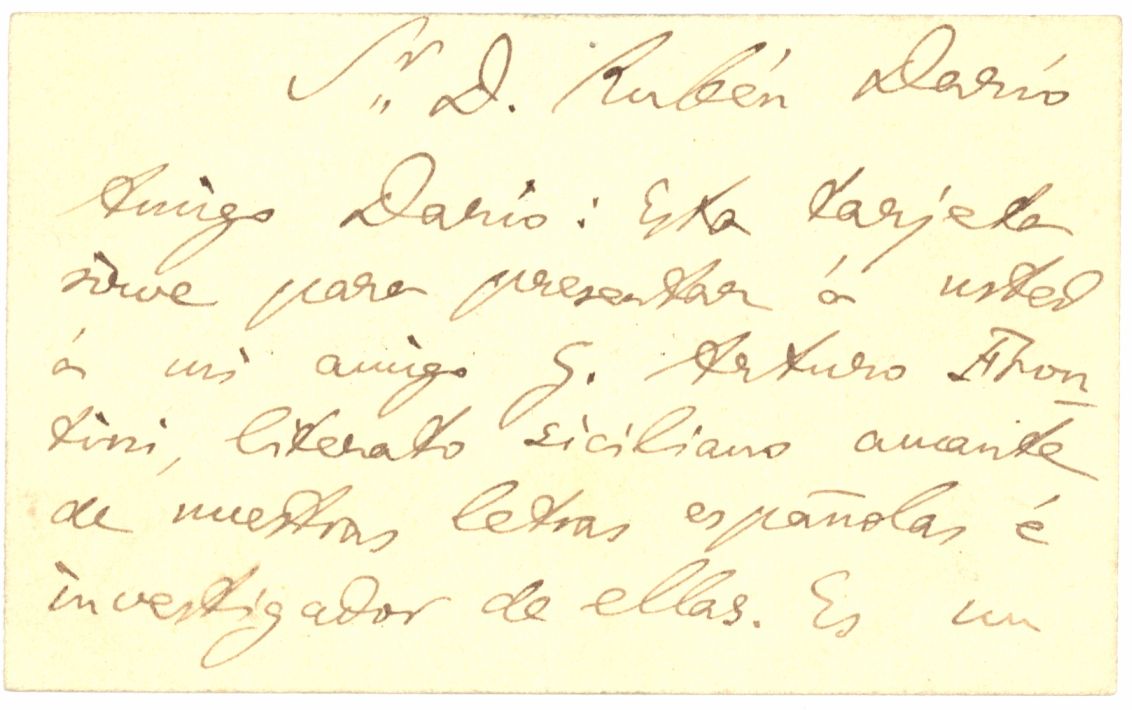 Sr. D. Rubén Darío
Amigo Darío: Esta tarjeta
sirve para presentar á usted
á mi amigo G. Arturo Fron-
tini, literato siciliano amante
de nuestras letras españolas é
investigador de ellas. Es un